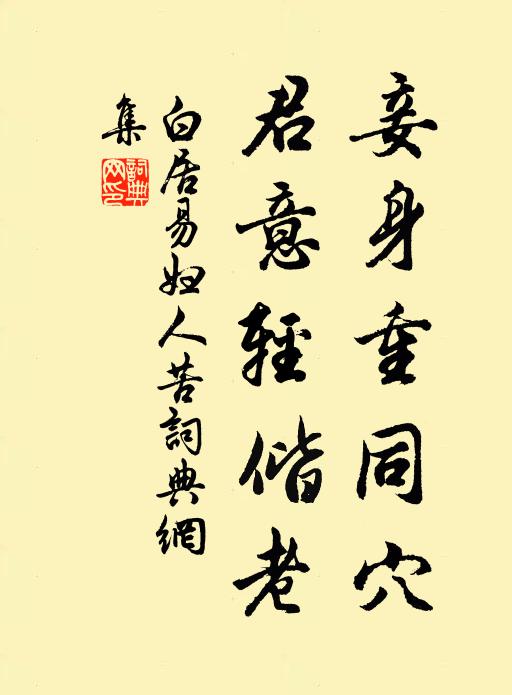 妾身重同穴
君意輕偕老
白居易婦人苦詞典網
集
詞典
网印